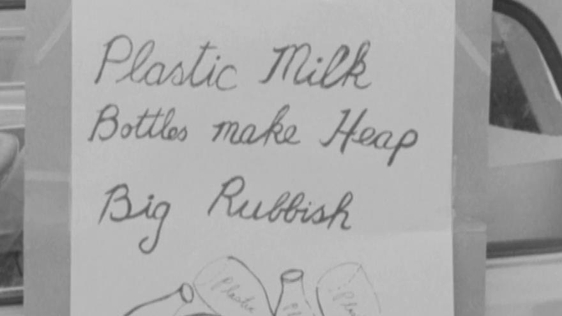 Plastic Milk
Bottles make Heap
Big Rubbish
Plastic